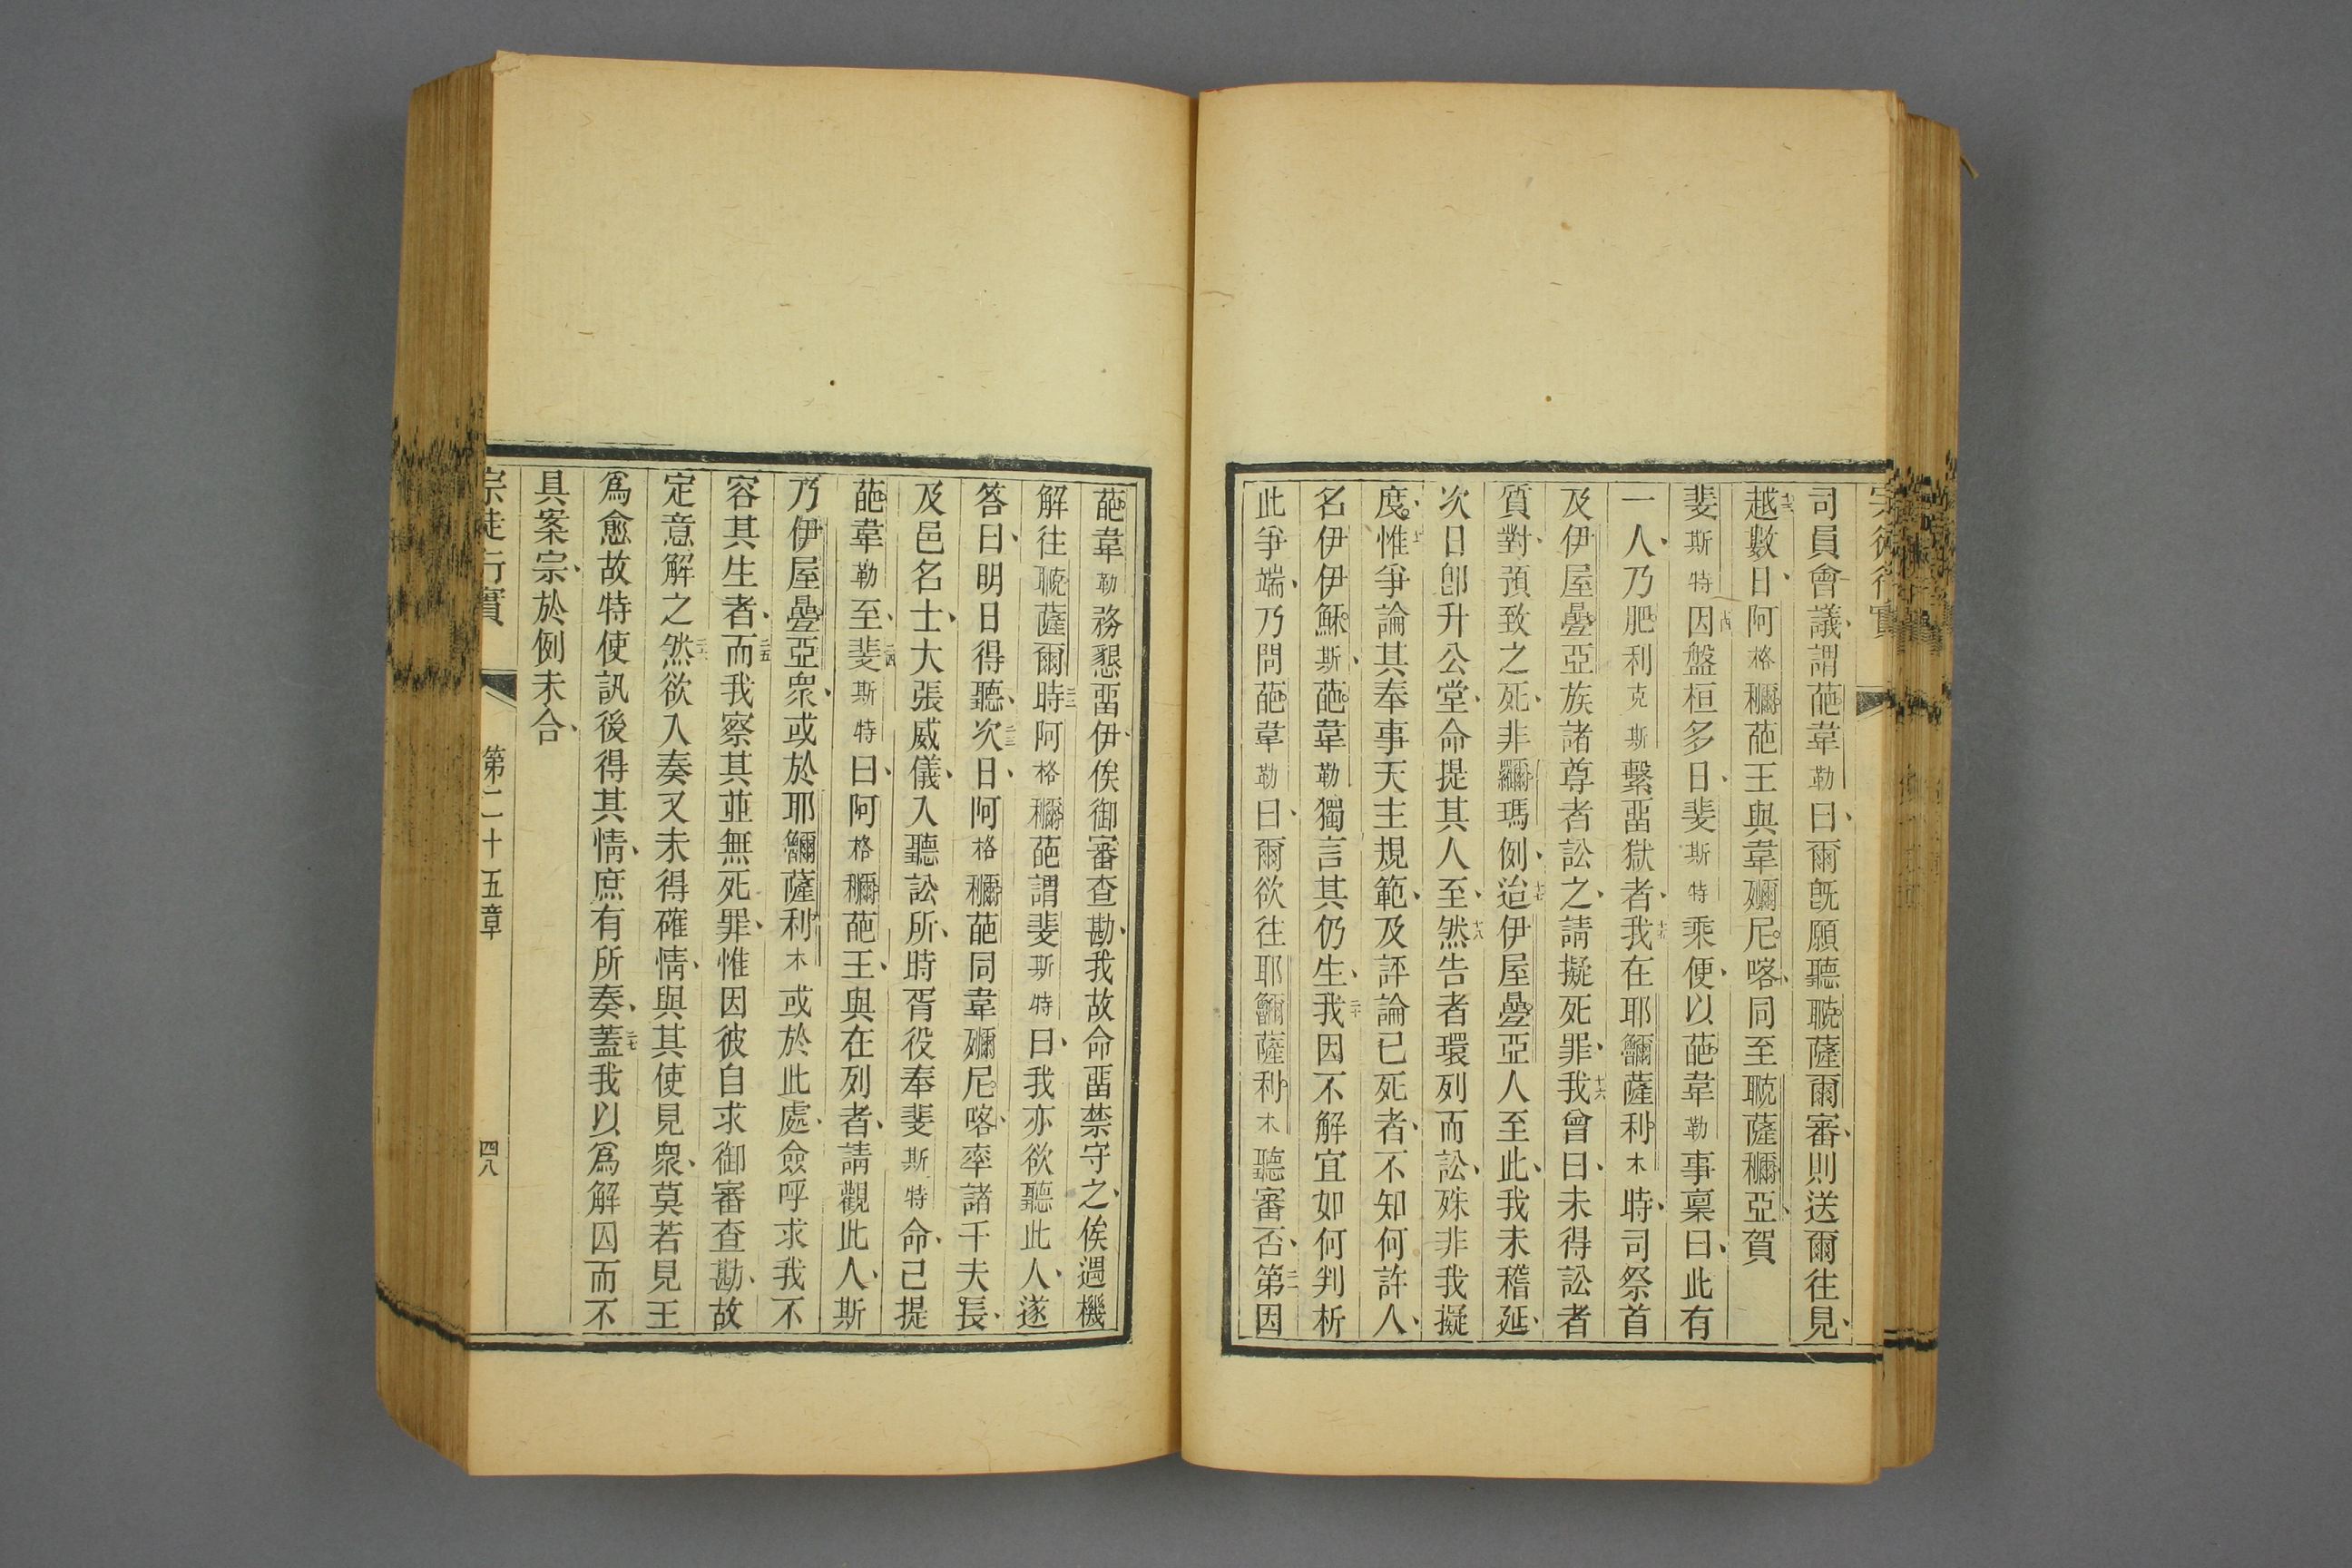 宗徒行實
司員會議、謂葩韋勒曰、爾旣願聽聴薩爾審、則送爾往見、
十三越數日、阿格穪葩王與韋㺠尼喀、同至聴薩穪亞、賀
斐斯特十四因盤桓多日、斐斯特乘便、以葩韋勒事稟曰、此有
一人、乃肥利克斯繫畱獄者、十五我在耶䥯薩利木時、司祭首
及伊屋疊亞族諸尊者訟之、請擬死罪、十六我曾曰、未得訟者
質對、預致之死、非羅瑪例、十七迨伊屋疊亞人至此、我未稽延、
次日卽升公堂、命提其人至、十八然告者環列而訟、殊非我擬
度。十九惟爭論其奉事天主規範、及評論已死者、不知何許人、
名伊伊穌斯、葩韋勒獨言其仍生、二十我因不解宜如何判析
此爭端、乃問葩韋勒曰、爾欲往耶䥯薩利木聽審否、二一第因
葩韋勒務懇畱伊、俟御審查勘、我故命畱禁守之、俟遇機
解往聴薩爾、二二時阿格穪葩謂斐斯特曰、我亦欲聽此人、遂
答曰、明日得聽、二三次日、阿格穪葩同韋㺠尼喀、率諸千夫長、
及邑名士、大張威儀、入聽訟所、時胥役奉斐斯特命、已提
葩韋勒至、二四斐斯特曰、阿格穪葩王、與在列者、請觀此人、斯
乃伊屋疊亞衆、或於耶䥯薩利木或於此處、僉呼求我不
容其生者、二五而我察其並無死罪、惟因彼自求御審查勘、故
定意解之、二六然欲入奏、又未得確情、與其使見衆、莫若見王
爲愈、故特使訊後得其情、庶有所奏、二七蓋我以爲解囚而不
具案宗、於例未合、
宗徒行實
第二十五章
四八